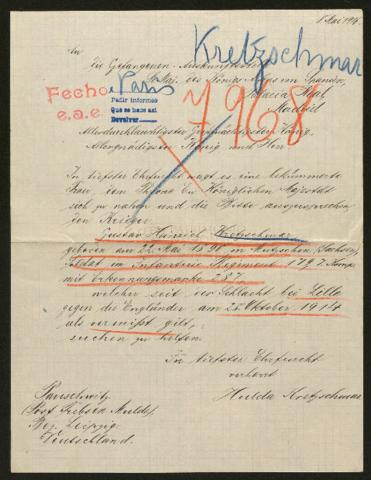 1 Mai 191
An
die Gefangenen-Auskunftstelle
Sr. Maj. des Königs von Spanien,
Palacio Real,
Madrid
Kretzschmar
Fecho
e.a.e.
Paris
Pedir informes
Que se hace así
Devolver
7968
Allerdurchlauchtigster Großmächtigster König,
Allergnädigster König und Herr
In tiefster Ehrfurcht wagt es eine bekümmerte
Frau, dem Throne Eu Königlichen Majestät
sich zu nahen und die Bitte auszusprechen
den Krieger
Gustav Heinrich Kretzschmar
geboren am 22. Mai 1891 in Mutzschen (Sachsen)
Soldat im Infanterie Regiment 179 7. Komp
mit Erkennungsmarke 257
welcher seit der Schlacht bei Lille
gegen die Engländer am 25. Oktober 1914
als vermißt gilt,
suchen zu helfen.
In tiefster Ehrfurcht
verharrt
Hulda Kretzschmar
Pauschwitz
Post Trebsen Mulde,
Bez. Leipzig.
Deutschland.